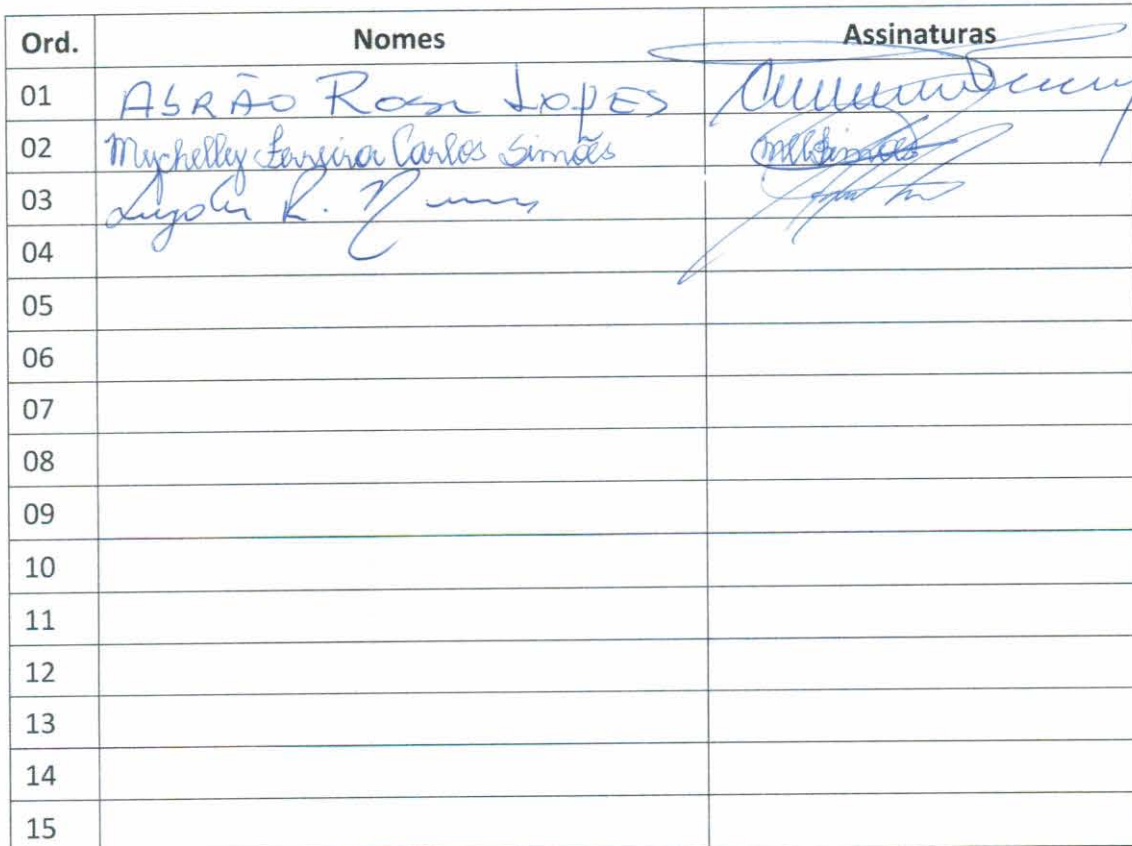 Ord. Nomes Assinaturas
01 AbRÃO Rosa LOPES
02 Mychelley Ferreira Carlos Simões
03 R.
04
05
06
07
08
09
10
11
12
13
14
15